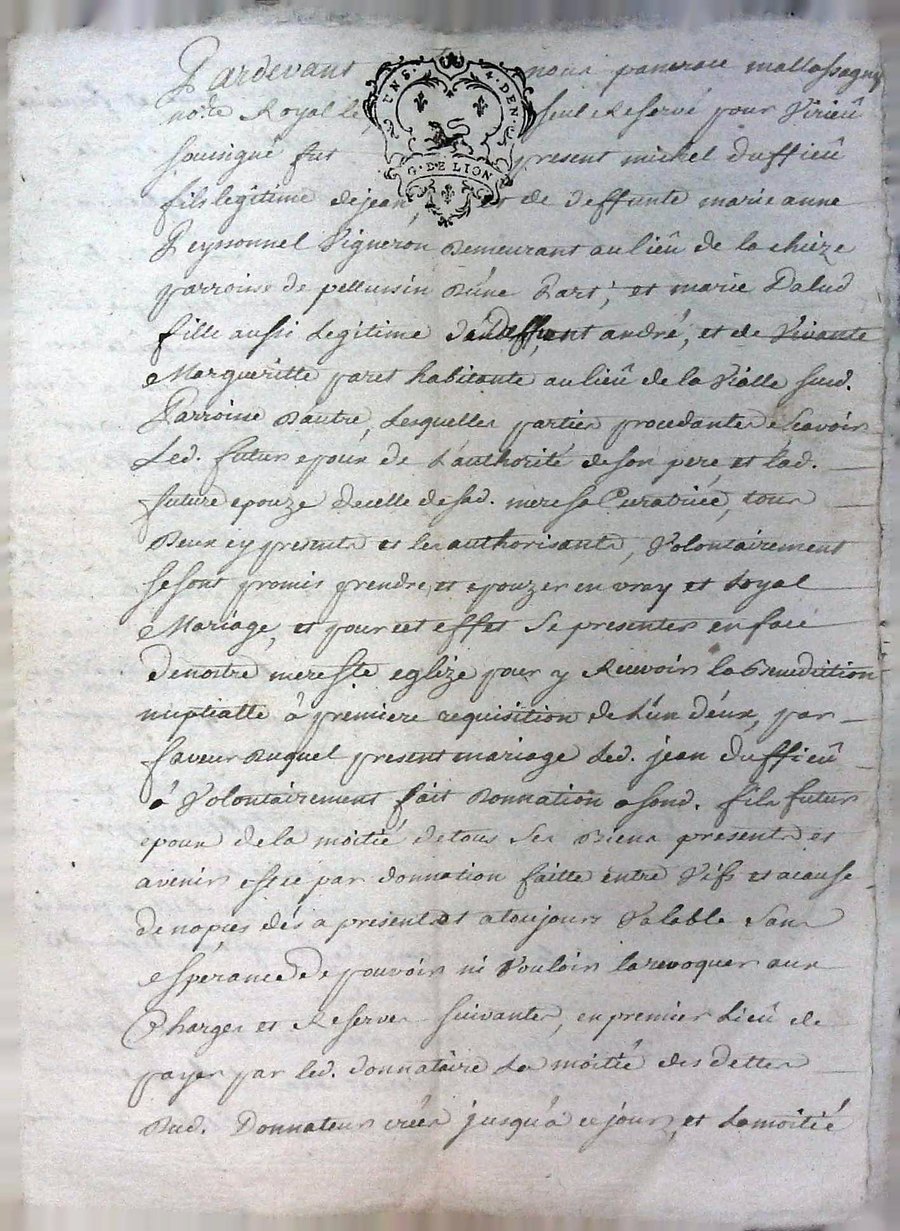 Pardevant nous pancrace mallassagny
UN S. 4. DEN.
G. DE LION
no.re Royal le seul Reservé pour Virieû
soussigné fut present michel duffieû
fils legitime de jean, et de deffunte marie anne
Peyssonnel Vigneron demeurant au lieû de la chieze
parroisse de pellussin d'úne Part, et marie Dalud
fille aussi Legitime dúdeffunt andré, et de Vivante
Margueritte paret habitante au lieû de la Vialle susd.
Parroisse d'autre, Lesquelles parties procedantes Scavoir
Led. futur epoux de L'authorité de son pere, et lad.
future epouze de celle de sad. mere sa Curatrice, tous
Deux icy presents et les authorisants, Volontairement
se sont promis prendre et epouzer en vray et Loyal
Mariage, et pour cet effet Se presenter en face
de nostre mere Ste eglize pour y Recevoir la Benediction
nuptialle à premiere requisition de L'ún d'éux, par
faveur duquel present mariage Led. jean duffieû
à Volontairement fait Donnation a sond. fils futur
epoux de la moitié de tous Ses Biens presents et
avenir et ce par donnation faitte entre Vifs et a cause
de nopces dés a present et a toujours Valable Sans
espérance de pouvoir ni Vouloir la revoquer aux
Charges et Reserves Suivantes, en premier Lieû de
payer par led. donnataire La moitié des dettes
Dud. Donnateur créés jusqu'a ce jour, et La moitié